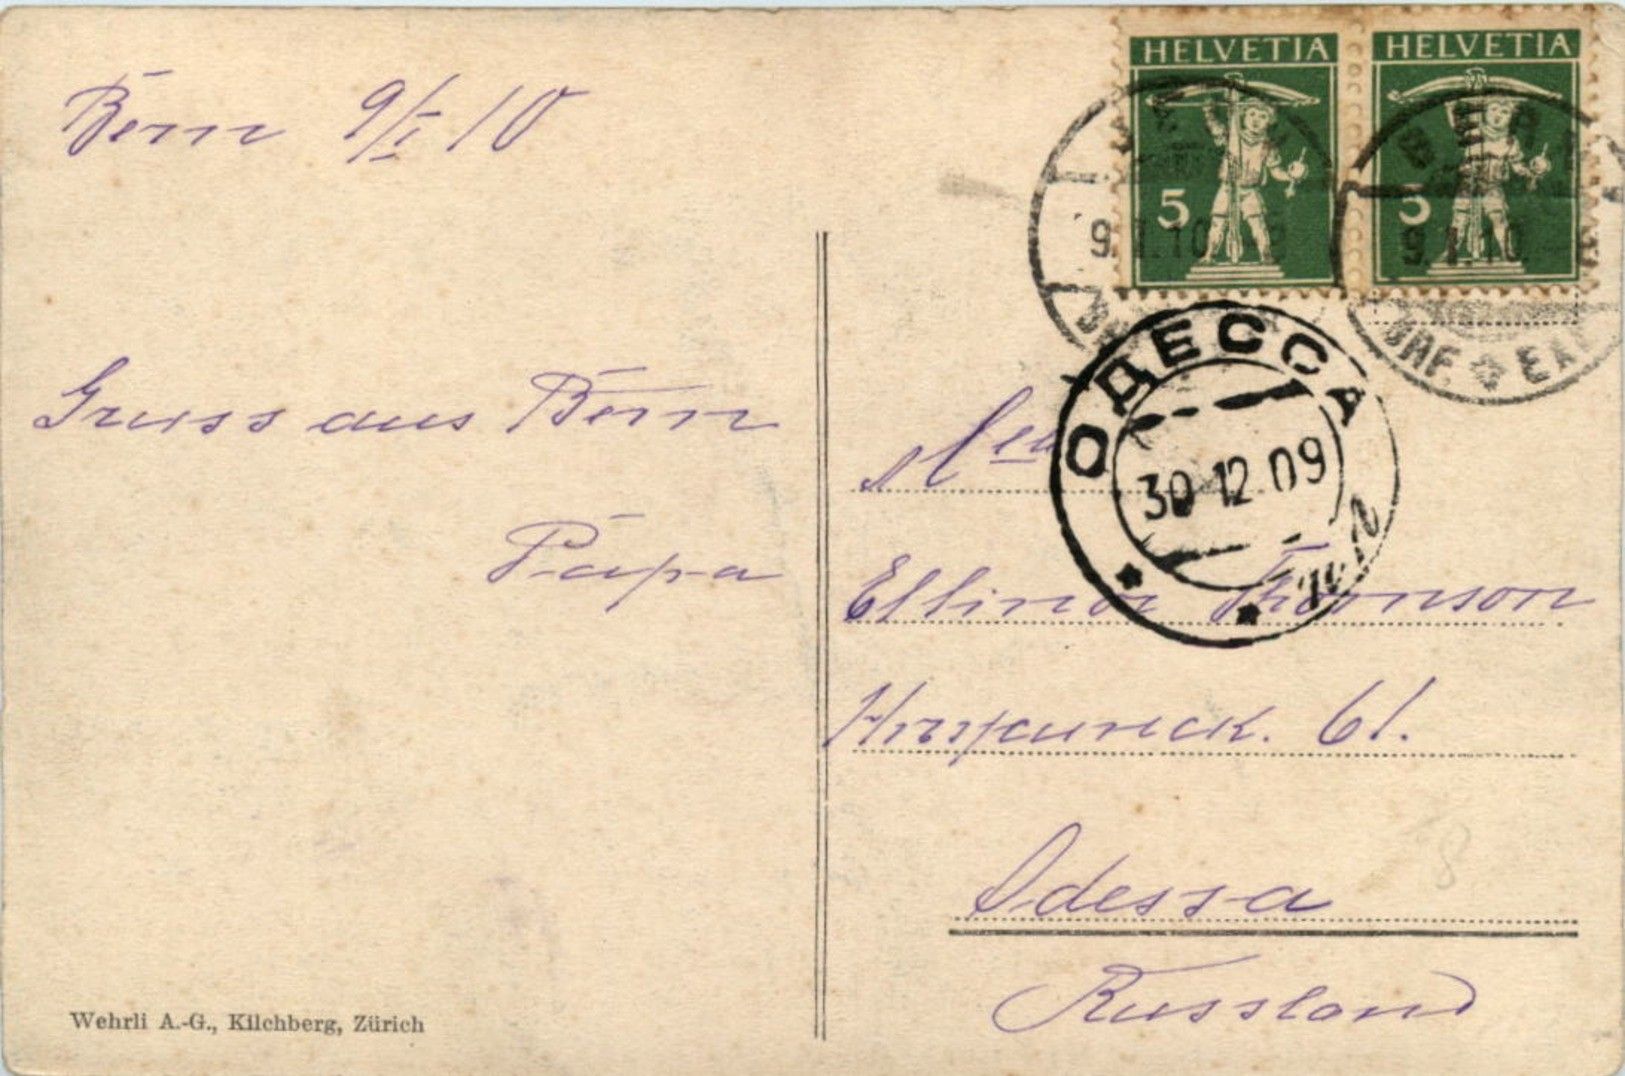 Bern 9/I 10
Gruss aus Bern
Papa
Wehrli A.-G., Kilchberg, Zürich
HELVETIA
5
HELVETIA
5
BERN
9.I.10.
BRF. ✻
ОДЕССА
30 12 09
Ellinor Thomson
61.
Odessa
Russland
8